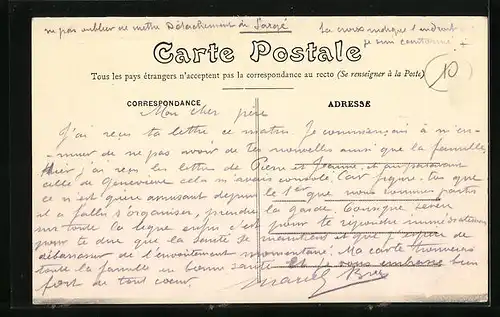 ne pas oublier de mettre Détachement de Sargé
La croix indique l'endroit
je suis cantonné +
Carte Postale
Tous les pays étrangers n'acceptent pas la correspondance au recto (Se renseigner à la Poste)
CORRESPONDANCE
ADRESSE
Mon cher père
J'ai reçu ta lettre ce matin. Je commençais à m'en-
nuyer de ne pas avoir de tes nouvelles ainsi que la famille.
Hier j'ai reçu les lettre de Pierre et Jeanne, et auparavant
celle de Geneviève cela m'avais consolé. Car figure-toi que
ce n'est guère amusant depuis le 1er que nous sommes partis
il a fallu s'organiser, prendre la garde. Consigne
sur toute la ligne enfin c'est pour te
pour te dire que la santé se maintient et que j'espère
débarrasser de l'envoitement momentané. Ma carte
toute la famille en bonne santé Et je vous embrasse bien
fort de tout coeur.
Marcel